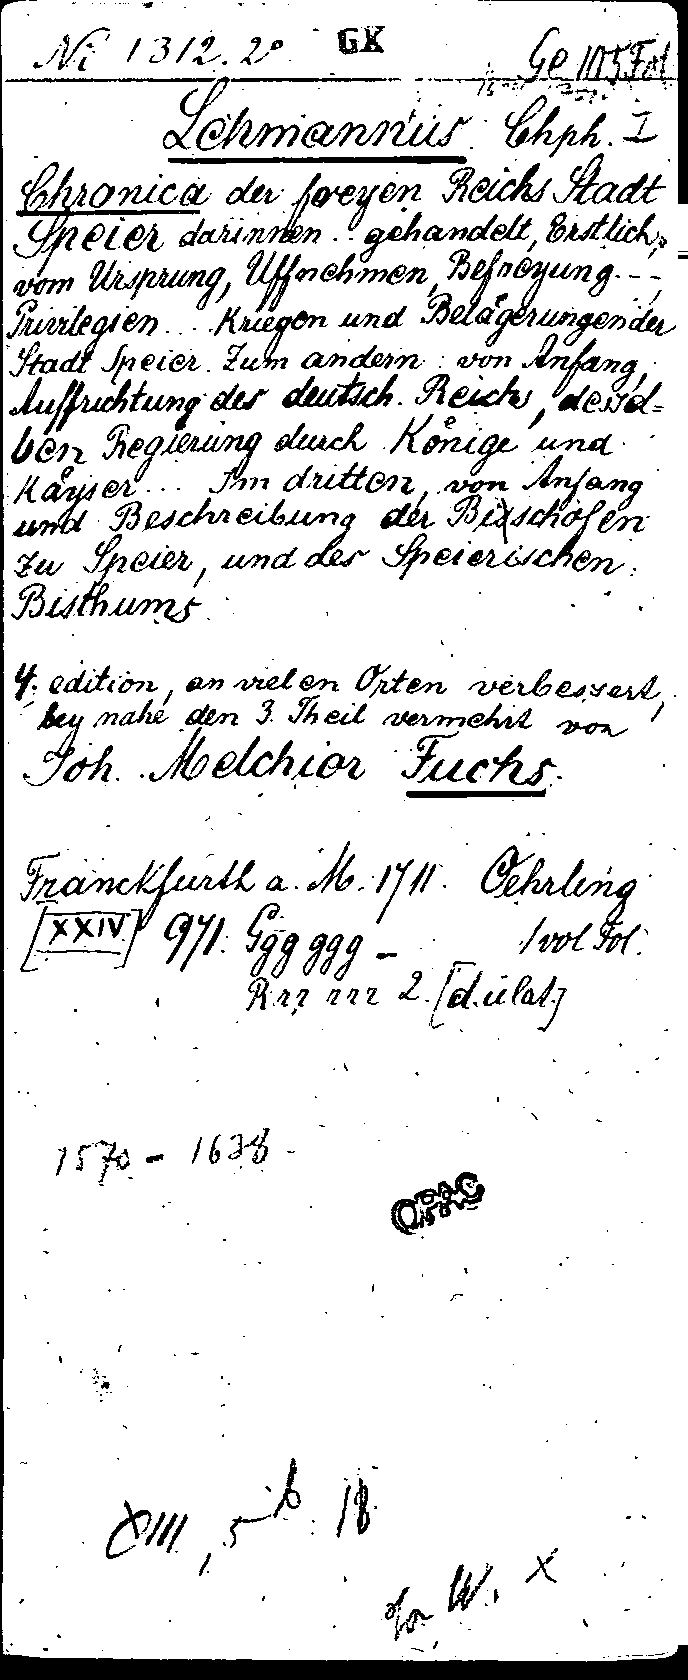 Ni 1312.2° GK Ge 1105 Fol
Lehmannus Chph. I
Chronica der freyen Reichs Stadt
Speier darinnen .. gehandelt, Erstlich,
vom Ursprung, Uffnehmen, Befreyung ---,
Privilegien ... Kriegen und Belägerungen der
Stadt Speier. Zum andern : von Anfang,
Auffrichtung des deutsch. Reichs, dessel=
ben Regierung durch Könige und
Käyser ... Im dritten, von Anfang
und Beschreibung der Bisschöfen
zu Speier, und des Speierischen
Bisthums
4. edition, an vielen Orten verbessert,
bey nahe den 3. Theil vermehrt von
Joh. Melchior Fuchs.
Franckfurth a. M. 1711. Oehrling
[XXIV] 971. Ggg ggg – 1 vol Fol.
Rrr rrr 2. [d. ult.]
1570 – 1638
OPAC
XIII, 5 b 18
W. x